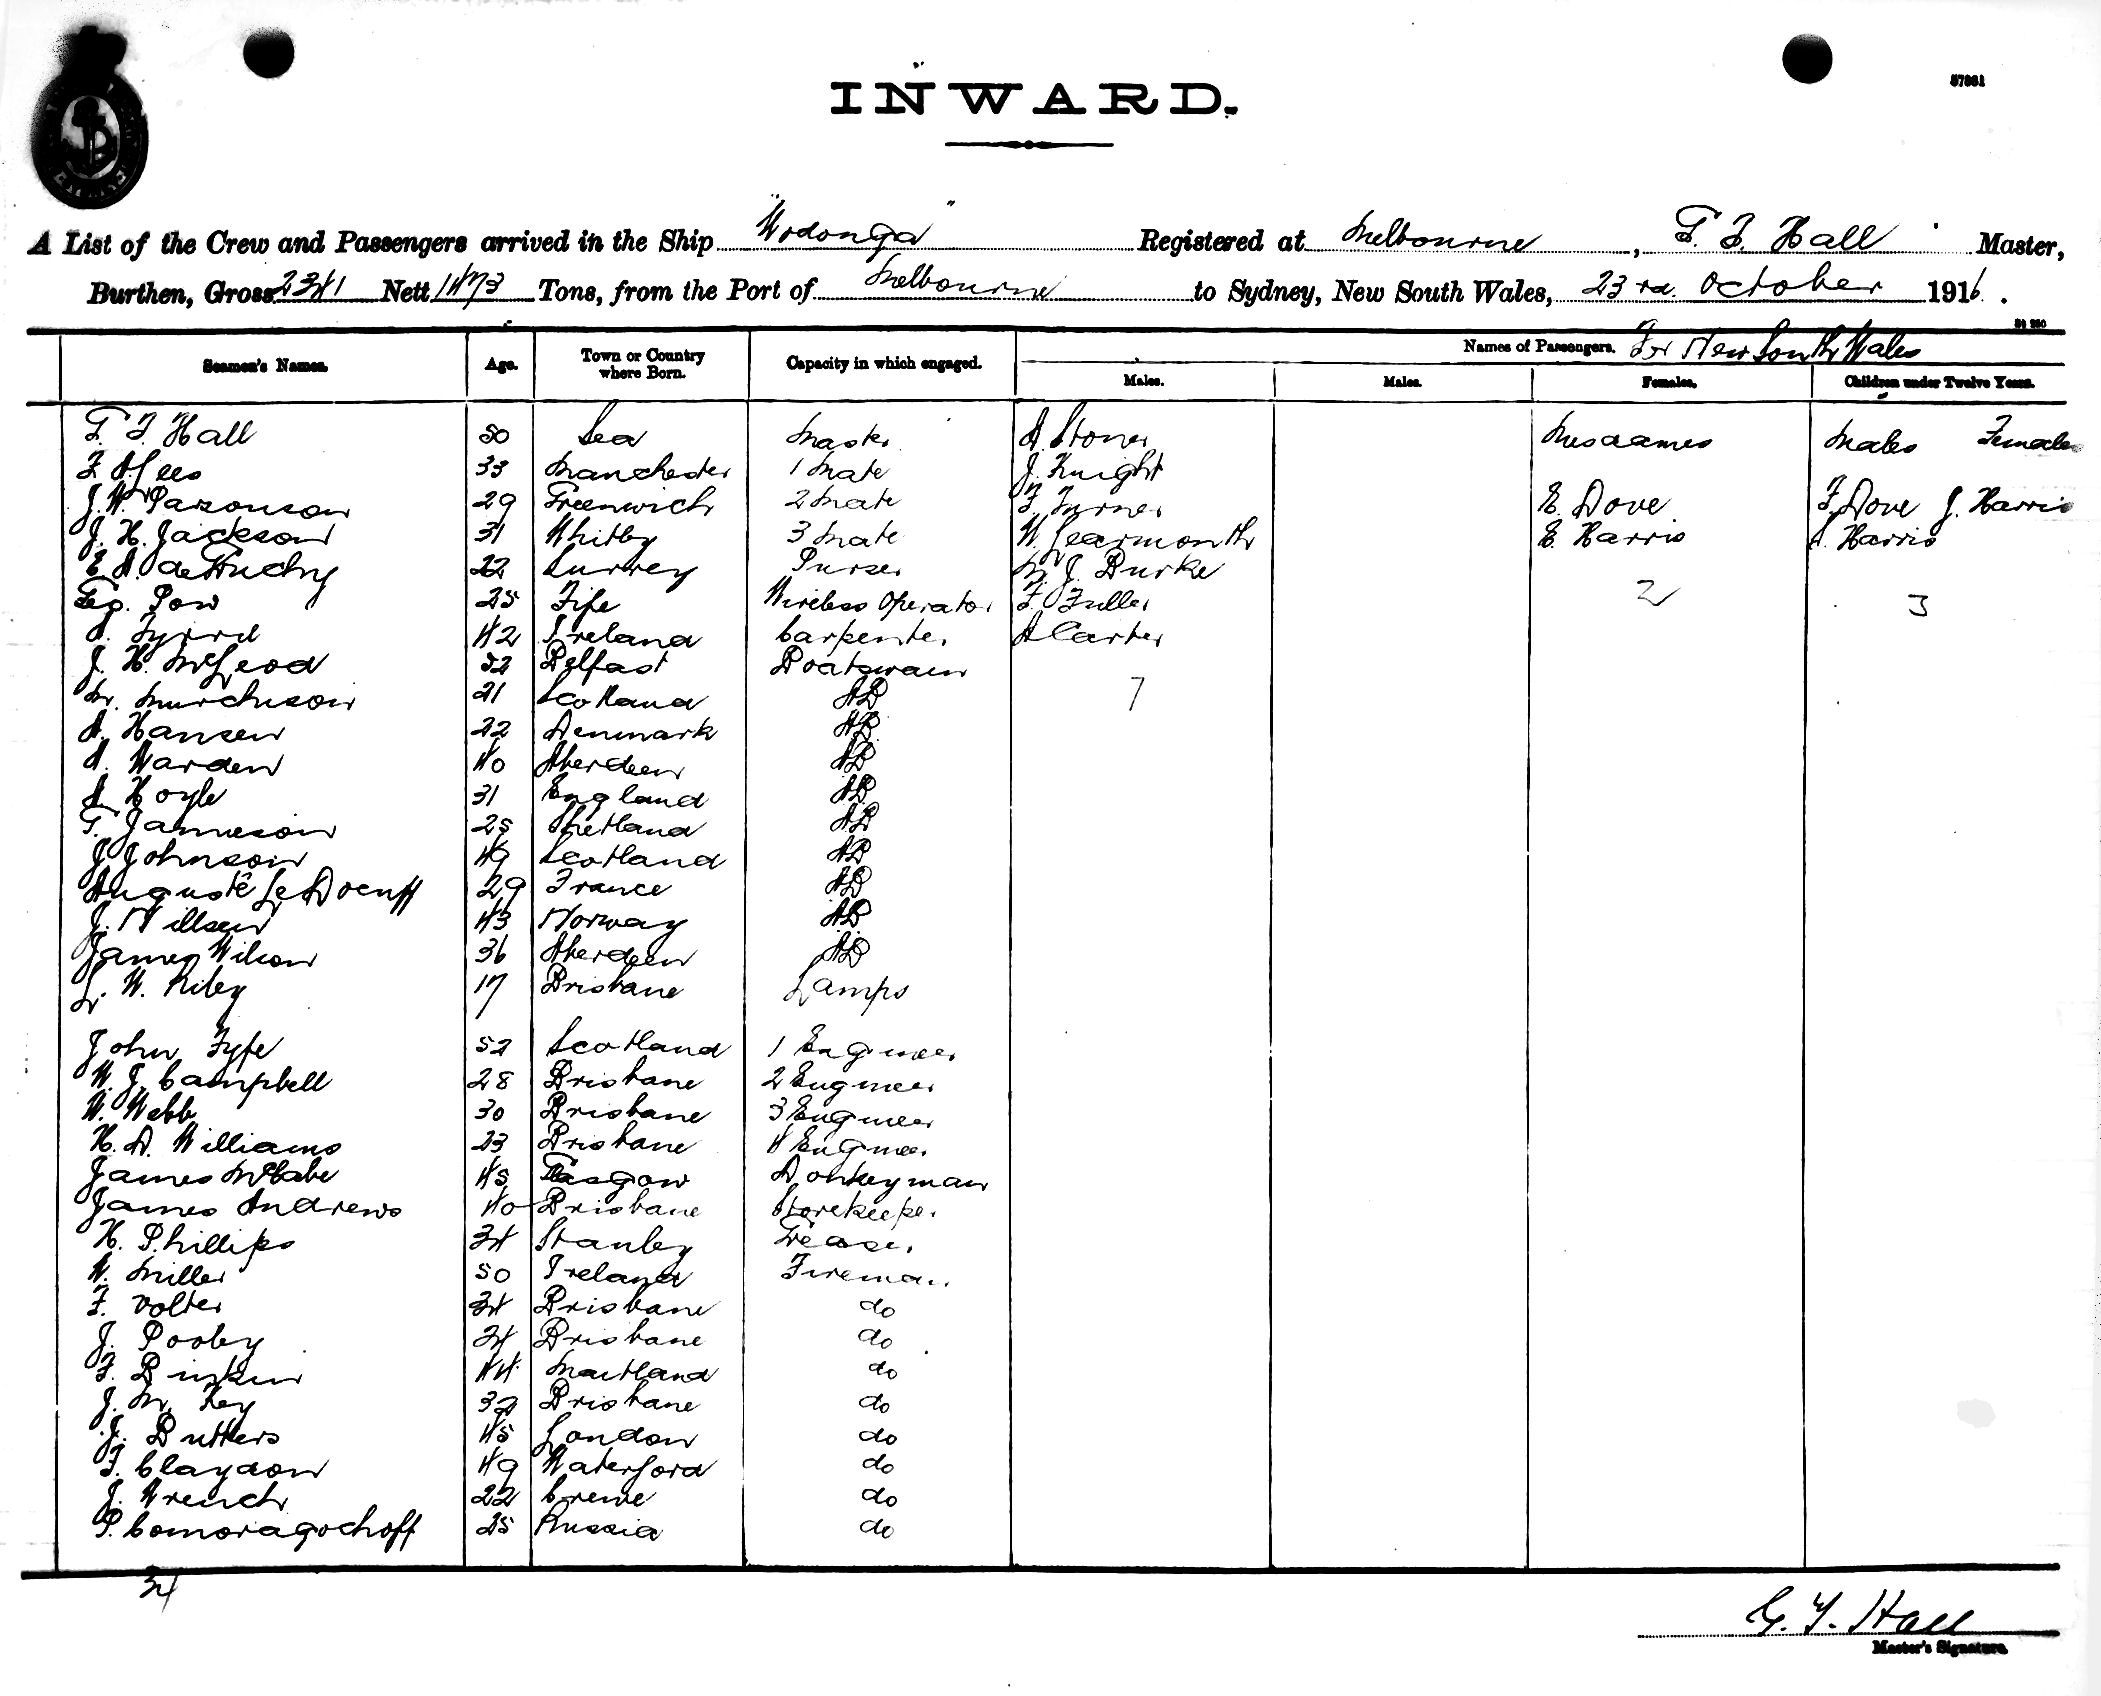 INWARD.
57981
A List of the Crew and Passengers arrived in the Ship "Wodonga" Registered at Melbourne, G. F. Hall Master,
Burthen, Gross 2341 Nett 1473 Tons, from the Port of Melbourne to Sydney, New South Wales, 23rd. October 1916.
Seamen's Names. Age. Town or Country where Born. Capacity in which engaged. Names of Passengers. For New South Wales
Males. Males. Females. Children under Twelve Years.
G. F. Hall 50 Sea Master A Stoner Mesdames Males Females
F A Lees 33 Manchester 1 Mate J. Knight
J. W. Parsonson 29 Greenwich 2 Mate F. Turner E. Dove F. Dove J. Harris
J. H. Jackson 31 Whitby 3 Mate W. Learmonth E. Harris A. Harris
E A de Gruchy 22 Surrey Purser M. J. Burke
Geo. Pow 25 Fife Wireless Operator F. Fuller 2 3
A. Tyrrel 42 Ireland Carpenter A Carter
J. H. McLeod 52 Belfast Boatswain
M. Murchison 21 Scotland AB 7
A. Hansen 22 Denmark AB
A. Warden 40 Aberdeen AB
A Hoyle 31 England AB
G. Jameson 25 Shetland AB
J Johnson 49 Scotland AB
Auguste Le 29 France AB
J. Nillsen 43 Norway AB
James Wilson 36 Aberdeen AB
L. W. Riley 17 Brisbane Lamps
John Fyfe 52 Scotland 1 Engineer
W. J. Campbell 28 Brisbane 2 Engineer
W. Webb 30 Brisbane 3 Engineer
H. A. Williams 23 Brisbane 4 Engineer
James McCabe 45 Glasgow Donkeyman
James Andrews 40 Brisbane Storekeeper
H. Phillips 34 Stanley Greaser
W. Miller 50 Ireland Fireman
F. Volter 34 Brisbane do
J. Pooley 34 Brisbane do
F. 44 Maitland do
J. M. Fey 32 Brisbane do
J. Butters 45 London do
F. Claydon 49 Waterford do
J. Wrench 22 Crewe do
P. Comoragochoff 25 Russia do
34
G. F. Hall
Master's Signature.